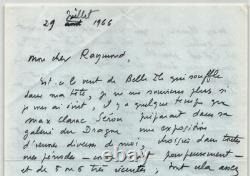 juillet
29 août 1966
mon cher Raymond,
Est-ce le vent de Belle Ile qui souffle
dans ma tête, je ne me souviens plus si
je t'ai dit, il y a quelque temps que
max Clarac Sérou préparait dans sa
galerie du Dragon une exposition
d'œuvres diverses de moi, choisies dans toutes
mes périodes
et de 5 ou 6 très récentes, tout cela avec